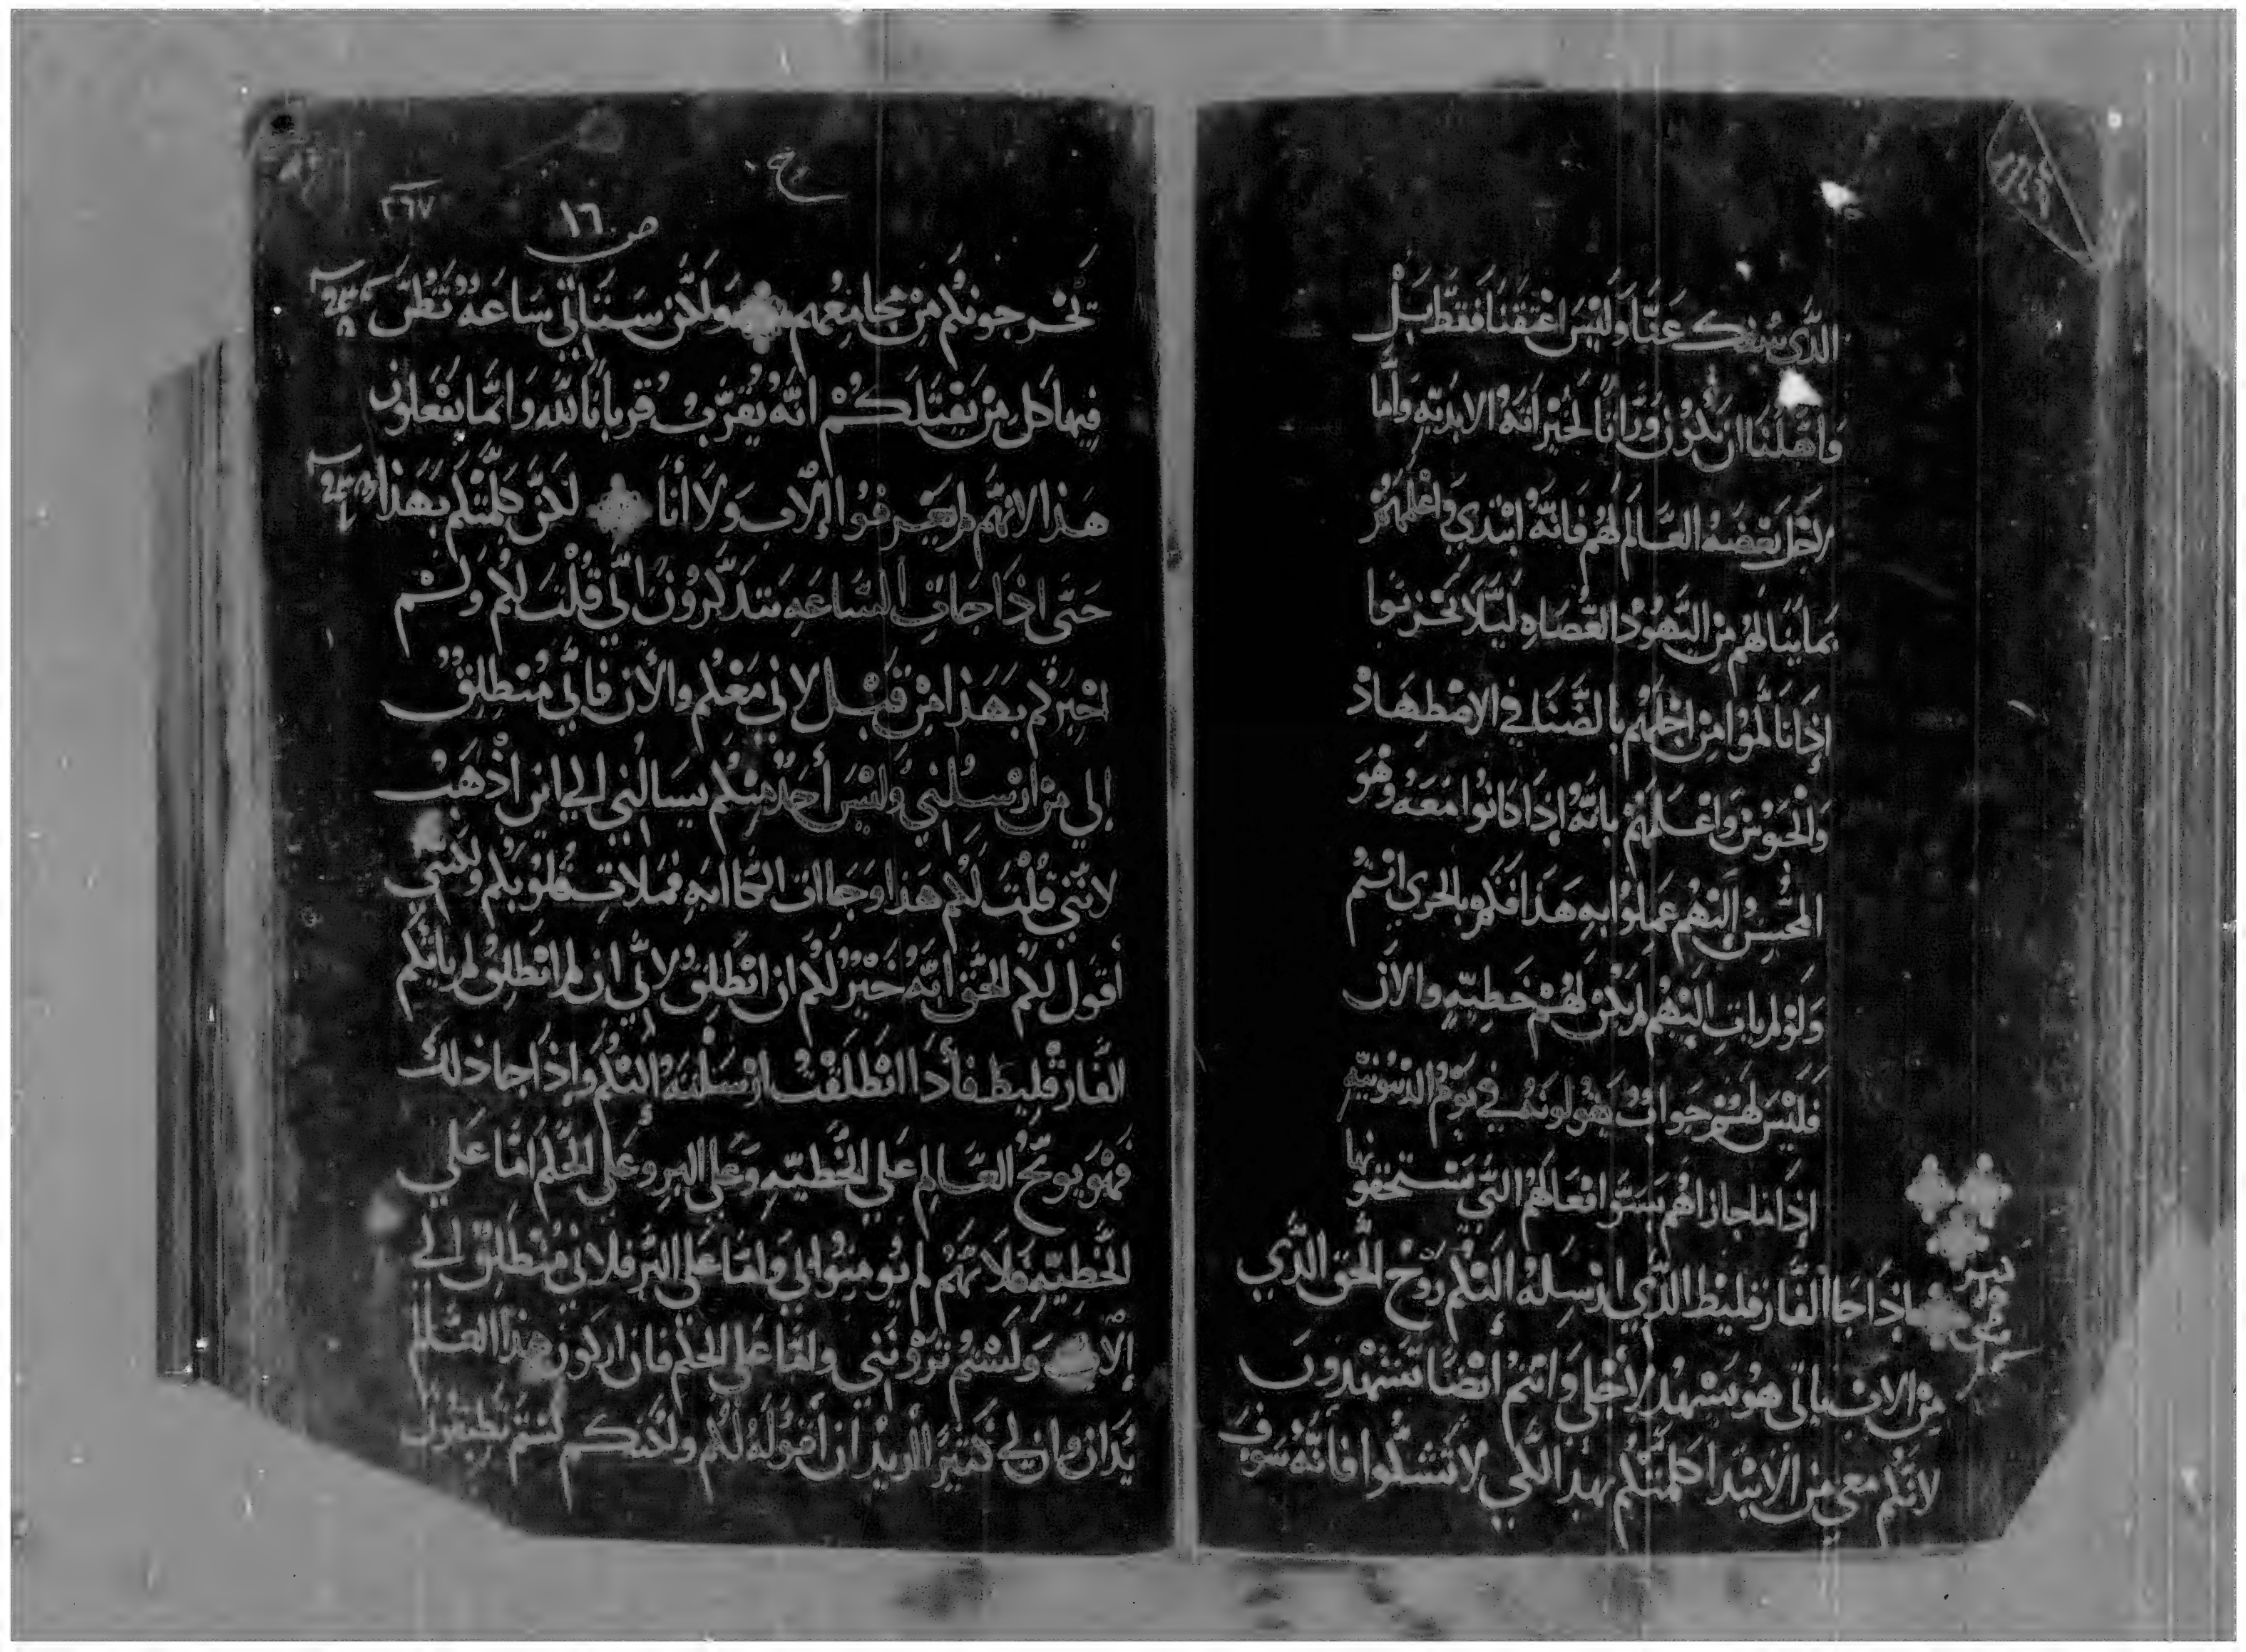 الذي سفك عنا وليس اعتقنا فقط بل
واهلنا ان نكون وراثا لخيراته الابديه واما
لاجل بغضه العالم لهم فانه ابتدي واعلمهم
بما ينالهم من اليهود العصاه ليلا يحزنوا
اذا تالموا من اجلهم بالضنا في الاضطهاد
واعلمهم بانه اذا كانوا معه وهو
المحسن اليهم عملوا به هذا فكم بالحري انتم
ولو لم يات اليهم لم يكن لهم خطيه والان
فليس لهم جواب يقولونه في يوم الدينونيه
اذا ما جازاهم بسو افعالهم التي يستحقونها
اذا جا الفارقليط الذي ارسله اليكم روح الحق الذي
من الاب ياتي هو يشهد لاجلي وانتم ايضا تشهدون
لانكم معي من الابتدا كلمتكم بهذا لكي لا تشكوا فانه سوف
٢٦٧
ص ١٦
تخرجونكم من مجامعهم ولكن ستاتي ساعه تظن
فيها كل من يقتلكم انه يقرب قربانا لله وانما يفعلون
هذا لانهم لم يعرفوا الاب ولا أنا لكن كلمتكم بهذا
حتى اذا جات الساعه تتذكرون اني قلت لكم ولم
اخبركم بهذا من قبل لاني معكم والأن فاني منطلق
إلي من ارسلني وليس أحد منكم يسالني الي اين اذهب
لانني قلت لكم هذا وجاات الكاابه فملات قلوبكم ولكنني
أقول لكم الحق انه خير لكم ان انطلق لاني ان لم انطلق لم ياتكم
الفارقليط فأذا انطلقت ارسلته اليكم واذا جا ذلك
فهو يوبخ العالم علي الخطيه وعلي البر وعلي الحكم امّا علي
الخطيه فلانهم لم يومنوا بي واما علي البر فلاني منطلق الي
الاب ولستم تروني واما علي الحكم فان اركون هذا العالم
يدان وان لي كثير اريد ان أقوله لكم ولكنكم لستم تطيقون